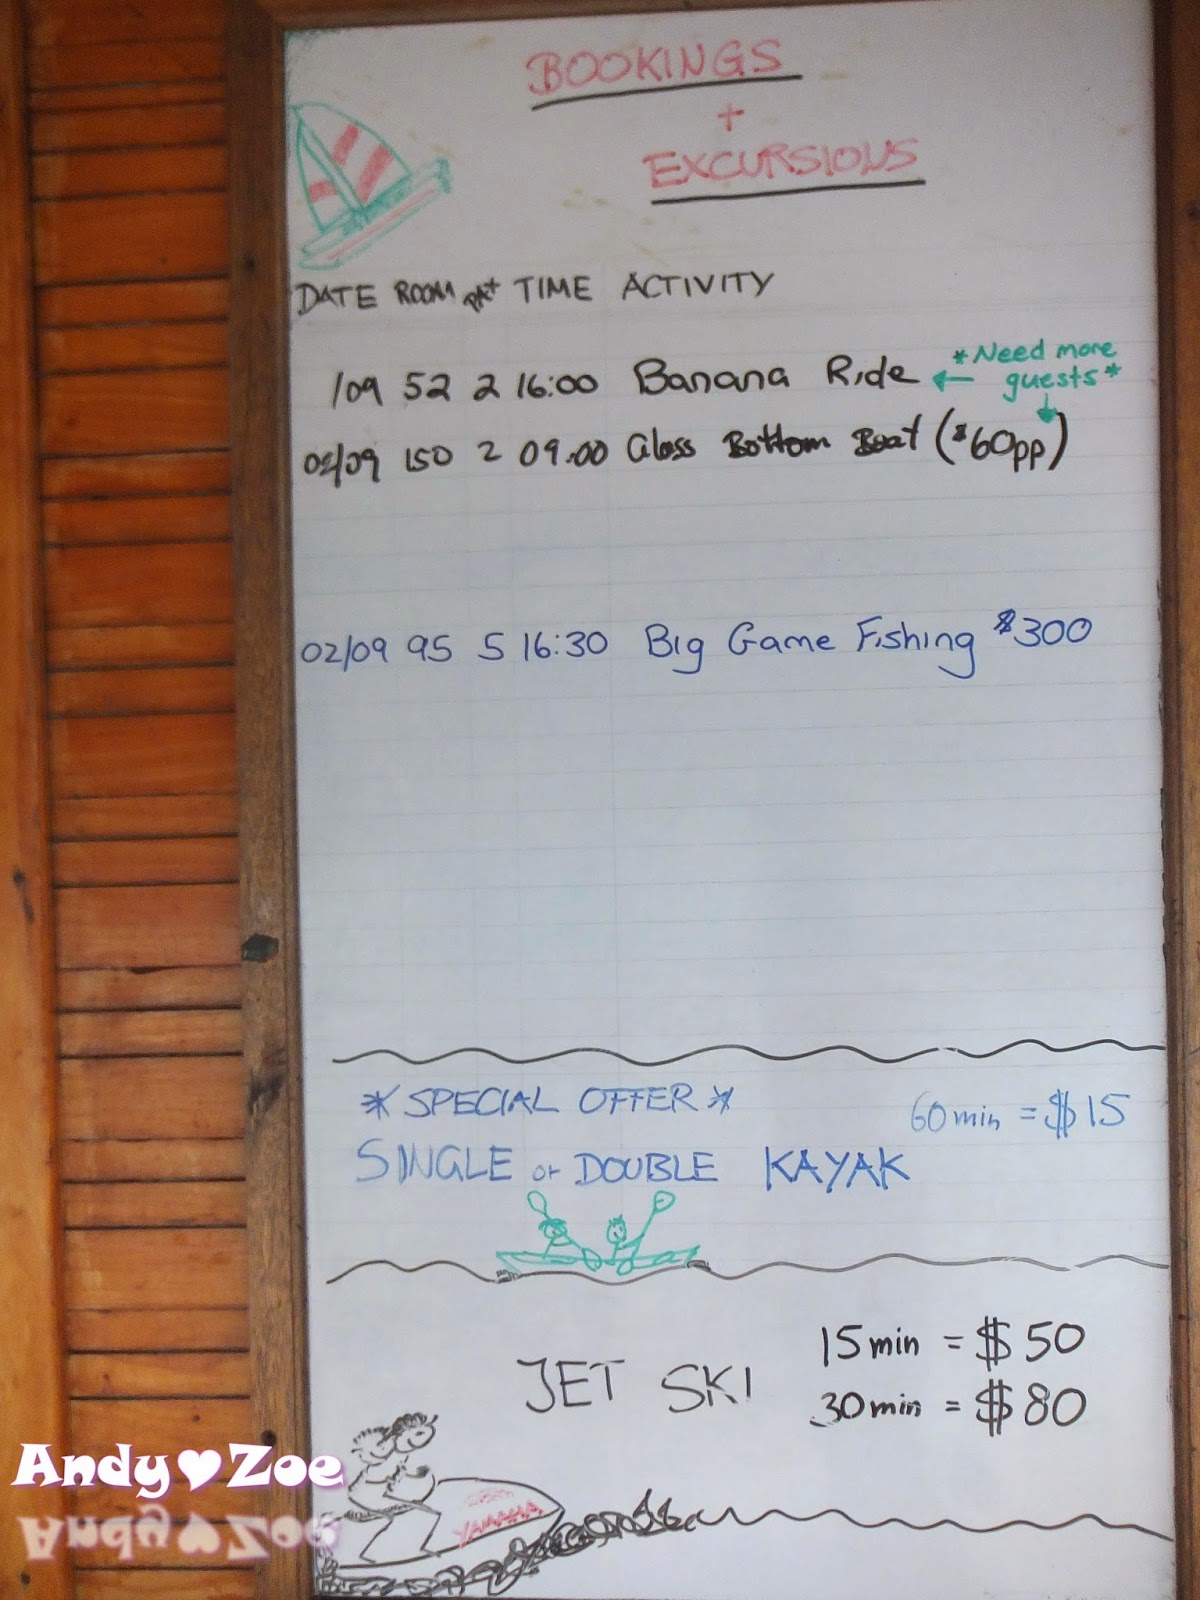 BOOKINGS
+
EXCURSIONS
DATE ROOM PAX TIME ACTIVITY
/09 52 2 16:00 Banana Ride
*Need more
guests*
02/09 150 2 09.00 Glass Bottom Boat ($60pp)
02/09 95 5 16:30 Big Game Fishing $300
*SPECIAL OFFER* 60min = $15
SINGLE or DOUBLE KAYAK
JET SKI
15min = $50
30min = $80
YAMAHA
Andy♥Zoe